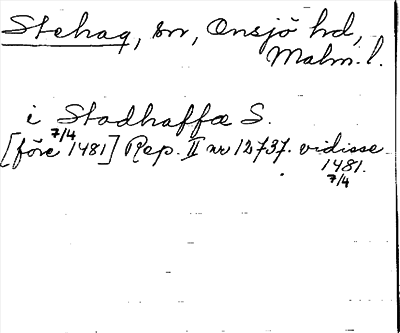 Stehag, sn, Onsjö hd,
Malm. l.
i Stadhaffæ S.
[före 7/4 1481] Rep. II nr 12737. vidisse
1481.
7/4